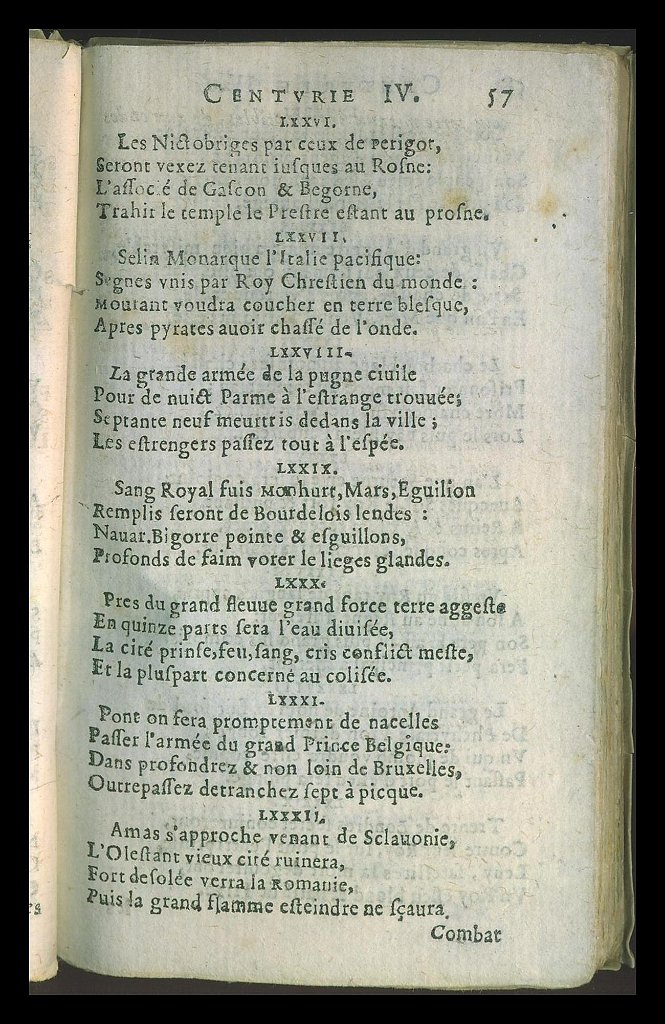 CENTVRIE IV. 57
LXXVI.
Les Nictobriges par ceux de Perigot,
Seront vexez tenant iuſques au Roſne:
L'aſſocié de Gaſcon & Begorne,
Trahir le temple le Preſtre eſtant au proſne.
LXXVII.
Selin Monarque l'Italie pacifique:
Regnes vnis par Roy Chreſtien du monde :
Mourant voudra coucher en terre bleſque,
Apres pyrates auoir chaſſé de l'onde.
LXXVIII.
La grande armée de la pugne ciuile
Pour de nuict Parme à l'eſtrange trouuée;
Septante neuf meurtris dedans la ville ;
Les eſtrengers paſſez tout à l'eſpée.
LXXIX.
Sang Royal fuis Monhurt, Mars, Eguillon
Remplis ſeront de Bourdelois lendes :
Nauar. Bigorre pointe & eſguillons,
Profonds de faim vorer le lieges glandes.
LXXX.
Pres du grand fleuue grand force terre aggeſte
En quinze parts ſera l'eau diuiſée,
La cité prinſe, feu, ſang, cris conflict meſte,
Et la pluſpart concerné au coliſée.
LXXXI.
Pont on fera promptement de nacelles
Paſſer l'armée du grand Prince Belgique:
Dans profondrez & non loin de Bruxelles,
Outrepaſſez detranchez ſept à picque.
LXXXII.
Amas s'approche venant de Sclauonie,
L'Oleſtant vieux cité ruinera,
Fort deſolée verra la Romanie,
Puis la grand flamme eſteindre ne ſçaura.
Combat